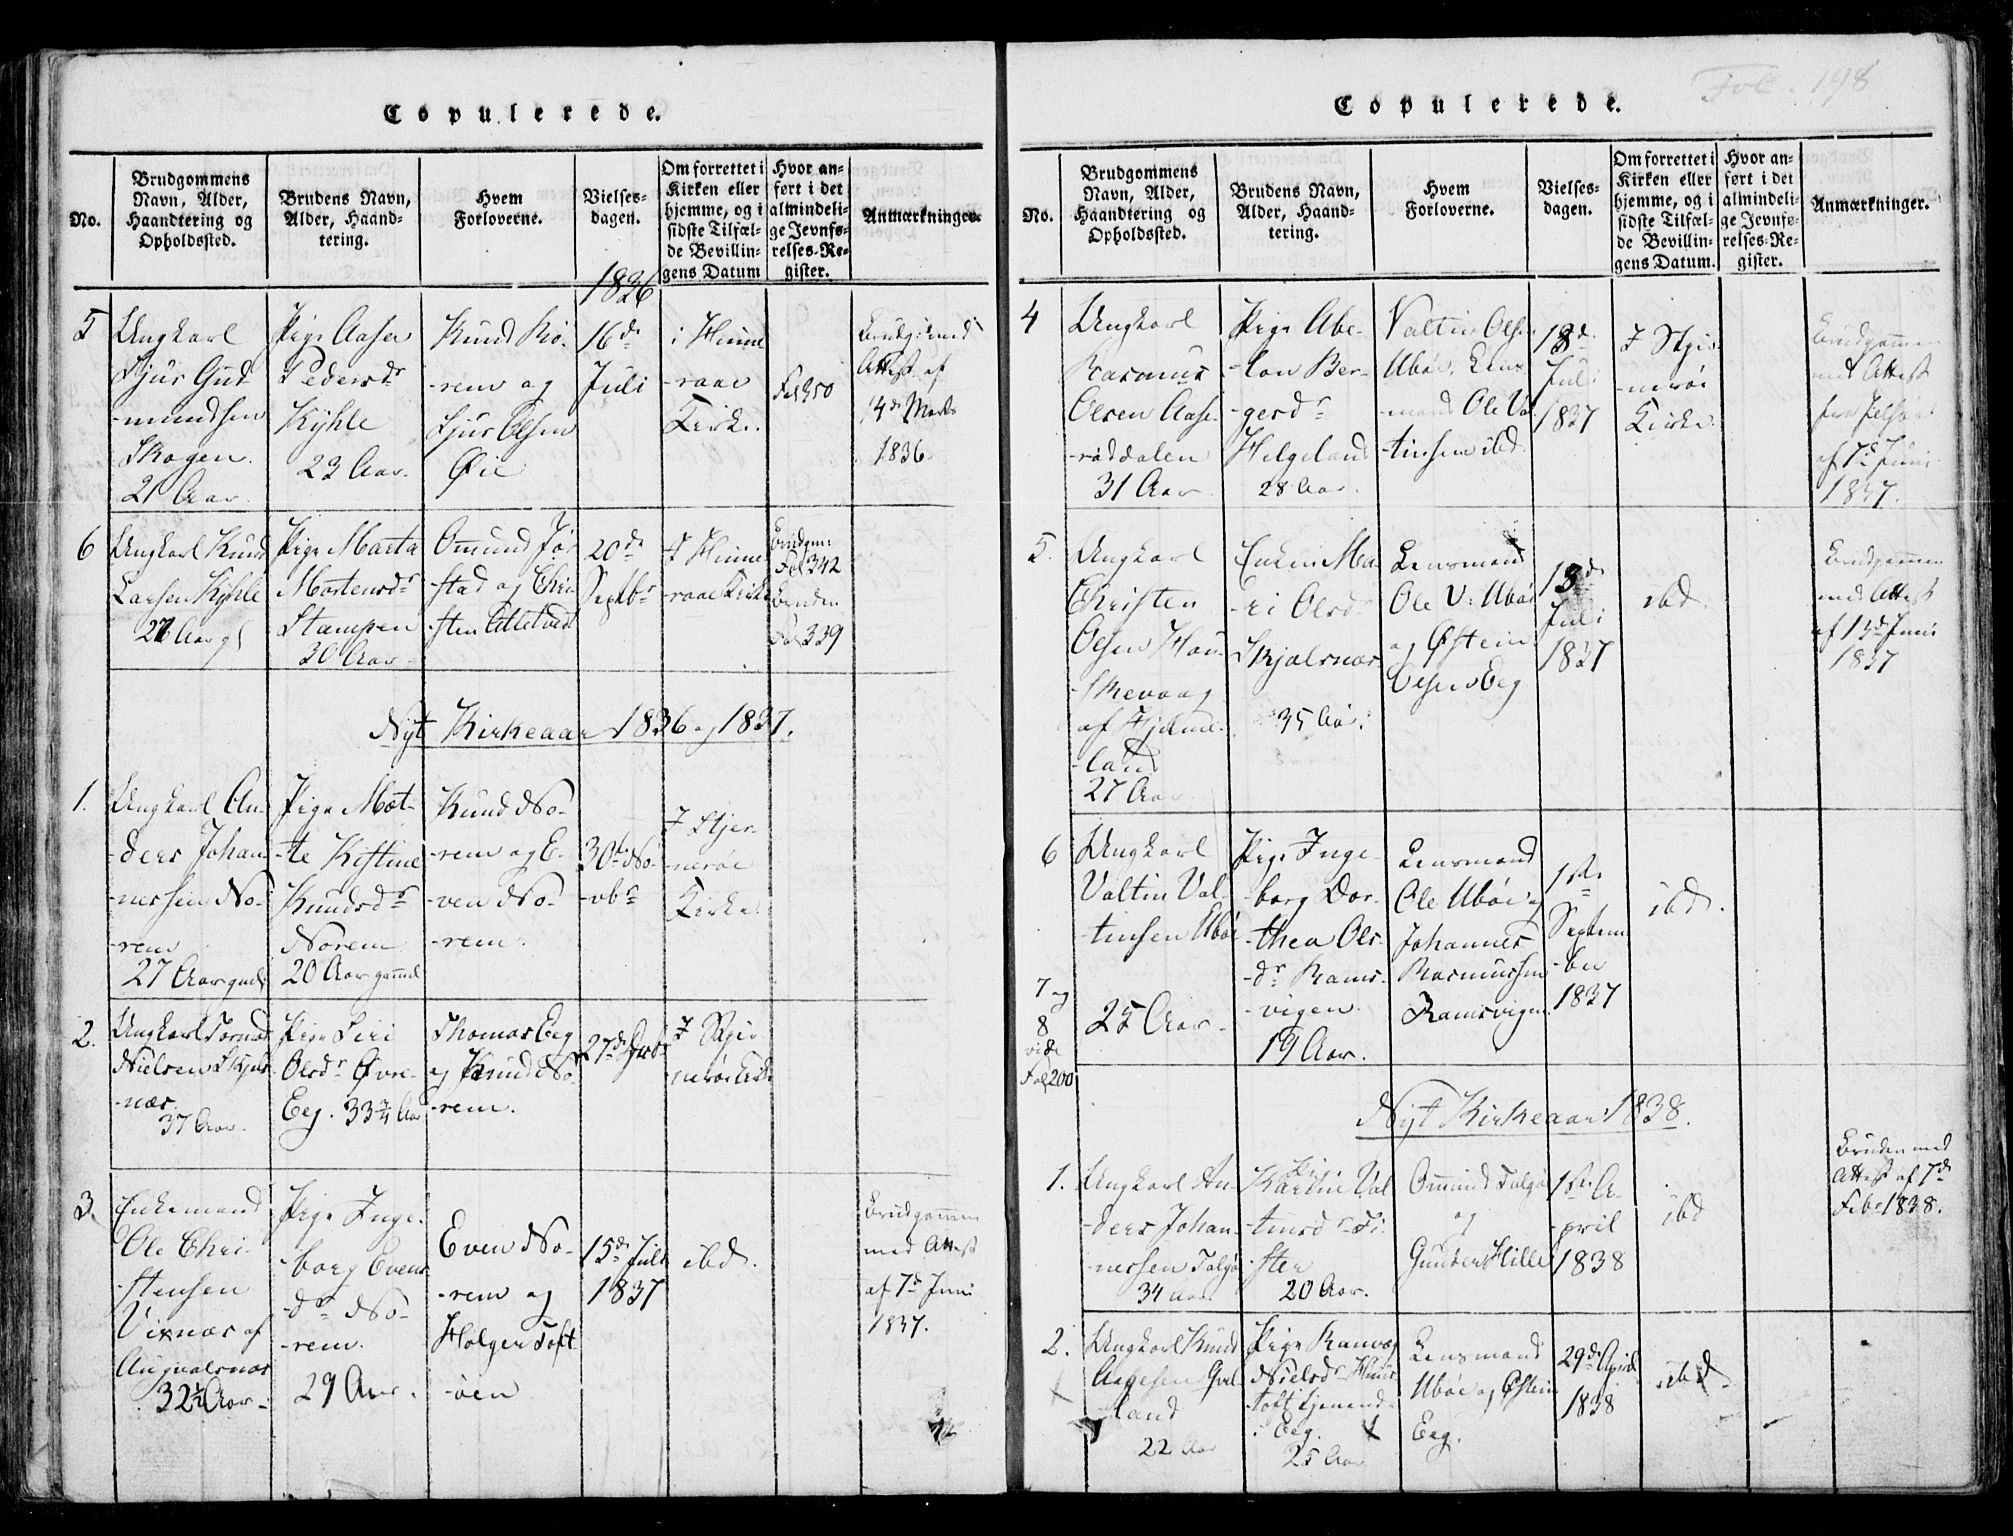 Copulerede.
No.
Brudgommens
Navn, Alder,
Haandtering og
Opholdssted.
Brudens Navn,
Alder, Haand-
tering.
Hvem
Forloverne.
Vielses-
dagen.
Om forrettet i
Kirken eller
hjemme, og i
sidste Tilfæl-
de Bevillin-
gens Datum
Hvor an-
ført i det
almindeli-
ge Jevnfø-
relses-Re-
gister.
Anmærkninger.
1836
5
Ungkarl
Sjur Gud
-mundsen
Skogen
21 Aar.
Pige Aasa
Pedersdr
Kyhle
23 Aar.
Knud
-rem og
Sjur Olsen
Øie
16de
Juli
i Hinne
-raae
Kirke.
Fol 350
Brudg: med
Attest af
14de Marts
1836.
6
Ungkarl Knud
Larsen Kyhle
Aar gl
Pige Marta
Mortensdr
Stampen
30 Aar
Omund Jør
-stad og Chri
-sten
20de
Septbr
I Hinne
-raae Kirke
Brudgm:
Fol 342
Bruden
Fol 339
Nyt Kirkeaar 1836 og 1837.
1.
Ungkarl An-
-ders Johan
-nessen No-
-rem
27 Aar gaml
Pige Met-
-te Kistine
Knudsdr
Norem
20 Aar gammel
Knud No-
-rem og E-
-ven No-
-rem.
30te No-
-vbr
I Stjer-
nerøe
Kirke.
2.
Ungkarl Tormod
Nielsen Skjuls
-næs
37 Aar.
Pige Siri
Olsdr Øvre-
Eeg. 33 3/4 Aar
Thomas Eeg
og Knud No-
-rem.
27de
I Stjer
nerøe Kirke
3.
Enkemand
Ole Chri-
-stensen
Viknæs af
Augvalsnæs
32½ Aar
Pige Inge-
-borg Evens
-dr No-
-rem.
29 Aar.
Even No-
-rem og
Holger Toft
-øen
15de Juli
1837
ibd.
Brudgommen
med Attest
af 7de Juni
1837.
Fol. 198
Copulerede.
No.
Brudgommens
Navn, Alder,
Haandtering og
Opholdssted.
Brudens Navn,
Alder, Haand-
tering.
Hvem
Forloverne.
Vielses-
dagen.
Om forrettet i
Kirken eller
hjemme, og i
sidste Tilfæl-
de Bevillin-
gens Datum.
Hvor an-
ført i det
almindeli-
ge Jevnfø-
relses-Re-
gister.
Anmærkninger.
4
Ungkarl
Rasmus
Olsen Aase-
-røddalen
31 Aar.
Pige Abe-
-lon Ber-
-gersdr
Helgeland
28 Aar.
Valtin Olsen
Ubøe, Lens
-mand Ole Val
-tinsen ibd.
18de
Juli
1837
I Stjer
-nerøe
Kirke
Brudgommen
med Attest
fra Jelsøe
af 7de Juni
1837.
5.
Ungkarl
Christen
Olsen Hau-
-skevaag
af Hjelme-
-land
27 Aar
Enken Ma-
-ri Olsdr
Skjolsnæs
35 Aar.
Lensmand
Ole V. Ubøe
og Østein
Olsen Eeg
18de
Juli
1837
ibd.
Brudgommen
med Attest
af 13de Juni
1837
6
Ungkarl
Valtin Val-
-tinsen Ubøe
25 Aar.
Pige Inge-
-borg Dor-
-thea Ols-
-dr Rams-
-vigen.
19 Aar.
Lensmand
Ole Ubøe og
Johannes
Rasmussen
Ramsvigen.
1ste
Septem
-ber
1837
ibd.
7 og
8
vide
Fol 200
Nyt Kirkeaar 1838.
1.
Ungkarl An-
-ders Johan-
-nessen Talgøe
34 Aar
Pige
Karine Val
-tinsdr Fi-
-ster
20 Aar.
Omund Talgøe
og
Gunder Hille
1ste A-
-pril
1838
ibd
Bruden med
Attest af 7de
Febr 1838.
2.
Ungkarl Knud
Aagesen
-land
22 Aar
Pige Ranveg
Nielsdr
toft tjenend-
i Eeg.
25 Aar
Lensmand
Ubøe og Østein
Eeg.
29de April
1838
ibd.